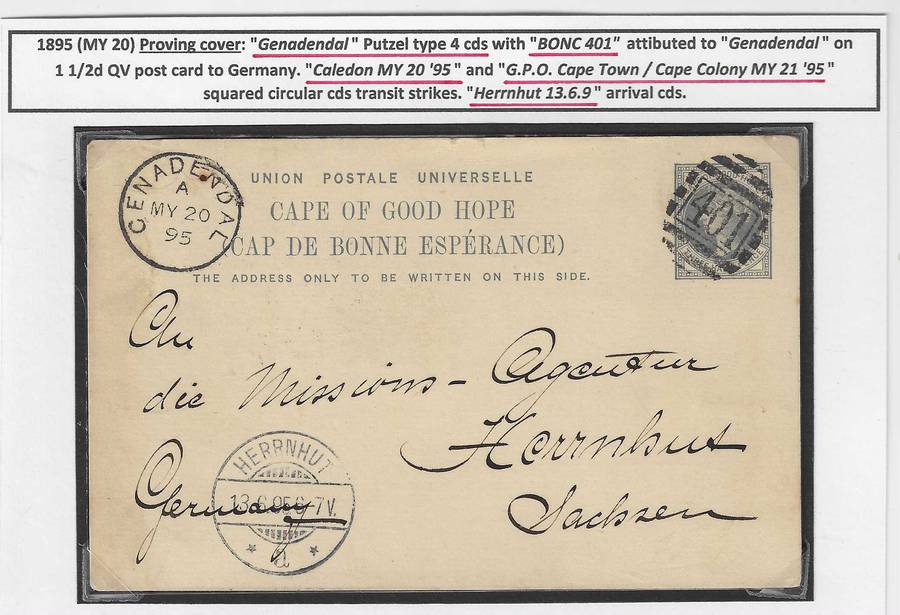 1895 (MY 20) Proving cover: "Genadendal" Putzel type 4 cds with "BONC 401" attibuted to "Genadendal" on
1 1/2d QV post card to Germany. "Caledon MY 20 '95" and "G.P.O. Cape Town / Cape Colony MY 21 '95"
squared circular cds transit strikes. "Herrnhut 13.6.9" arrival cds.
GENADENDAL
A
MY 20
95
UNION POSTALE UNIVERSELLE
CAPE OF GOOD HOPE
(CAP DE BONNE ESPÉRANCE)
THE ADDRESS ONLY TO BE WRITTEN ON THIS SIDE.
401
An
die Missions-Agentur
Herrnhut
Sachsen
Germany
HERRNHUT
13.6.95.6-7V.
* a *